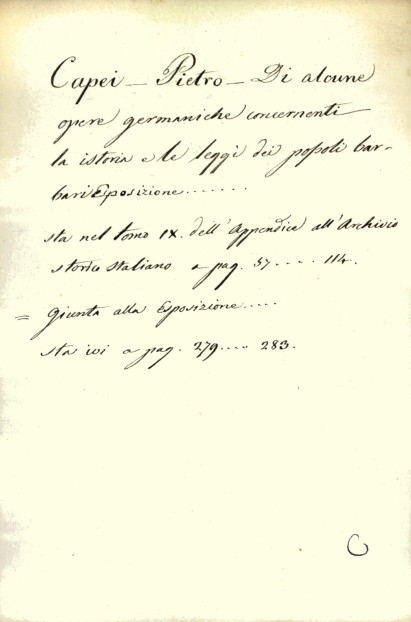 Capei _ Pietro _ Di alcune
opere germaniche concernenti
la istoria e le leggi dei popoli bar-
bari Esposizione.......
sta nel tomo IX. dell'Appendice all'Archivio
storico Italiano a pag. 57..... 114.
= Giunta alla Esposizione....
sta ivi a pag. 279.... 283.
C